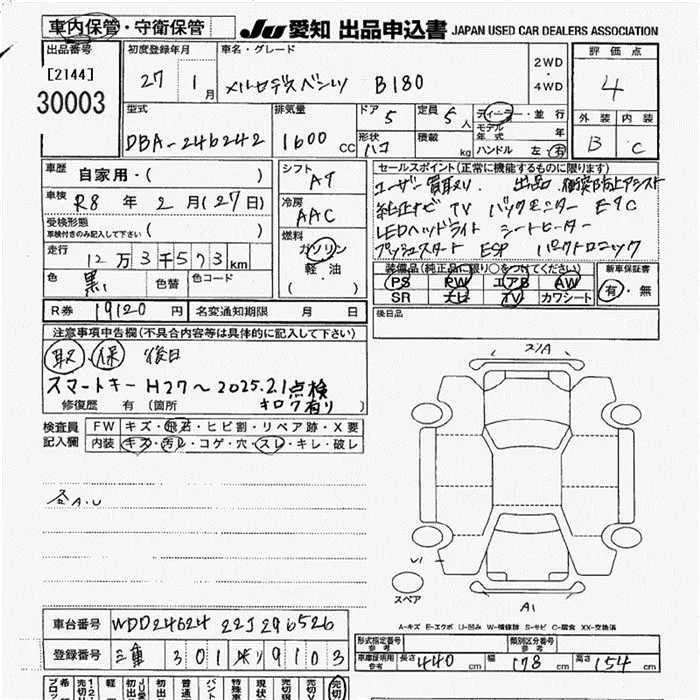 車内保管・守衛保管
JU 愛知 出品申込書 JAPAN USED CAR DEALERS ASSOCIATION
出品番号
[2144]
30003
初度登録年月
27 1月
車名・グレード
メルセデスベンツ B180
2WD
・
4WD
評価点
4
外装 内装
B C
型式
DBA-246242
排気量
1600 CC
ドア 5
形状 ハコ
定員 5人
積載 kg
ディーラー・並行
モデル年式 年
ハンドル 左・右
車歴 自家用・( )
車検 R8年2月(27日)
受検形態
車検付きのみ記入して下さい ( )
走行 12万3千573km
色 黒 色替 色コード
シフト AT
冷房 AAC
燃料
ガソリン
軽・油
( )
セールスポイント(正常に機能するものに限ります)
ユーザー買取り. 出品 衝突防止アシスト
純正ナビ TV バックモニター ETC
LEDヘッドライト シートヒーター
プッシュスタート ESP パークトロニック
装備品(純正品に限り○をつけてください)
PS PW エアB AW
SR ナビ TV カワシート
新車保証書
有・無
R券 19120円
名変通知期限 月 日
後日品
注意事項申告欄(不具合内容等は具体的に記入して下さい)
取・保 後日
スマートキー H27〜2025.2.1点検
キロク有り
修復歴 有 (箇所
検査員記入欄
FW キズ・飛石・ヒビ割・リペア跡・X要
内装 キズ・汚レ・コゲ・穴・スレ・キレ・破レ
各A.U
スリA
U1
スペア
A1
A-キズ E-エクボ U-凹み W-補修跡 S-サビ C-腐食 XX-交換済
車台番号 WDD2462422J296526
登録番号 三重 301 9103
型式指定番号 参考
類別区分番号 参考
車庫証明用 参考 長さ 440 cm 幅 178 cm 高さ 154 cm